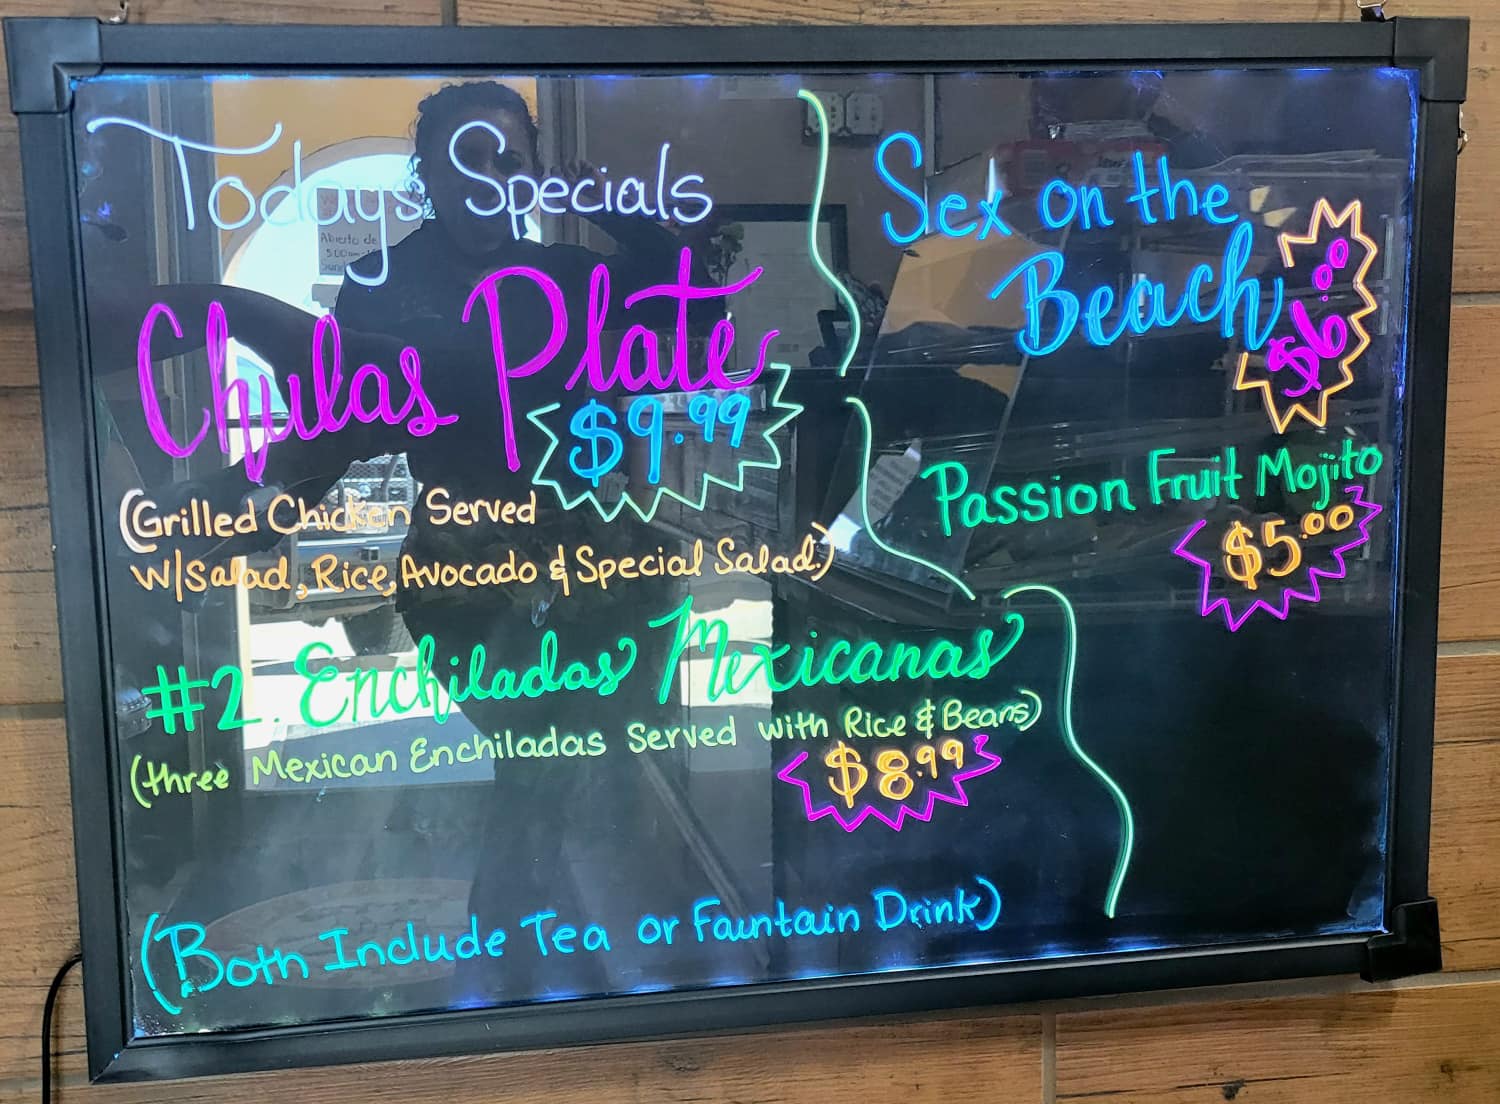 Todays Specials
Chulas Plate
$9.99
(Grilled Chicken Served
W/Salad, Rice, Avocado & Special Salad.)
#2. Enchiladas Mexicanas
(three Mexican Enchiladas Served with Rice & Beans)
$8.99
(Both Include Tea or Fountain Drink)
Sex on the
Beach
$6.00
Passion Fruit Mojito
$5.00
Abierto de